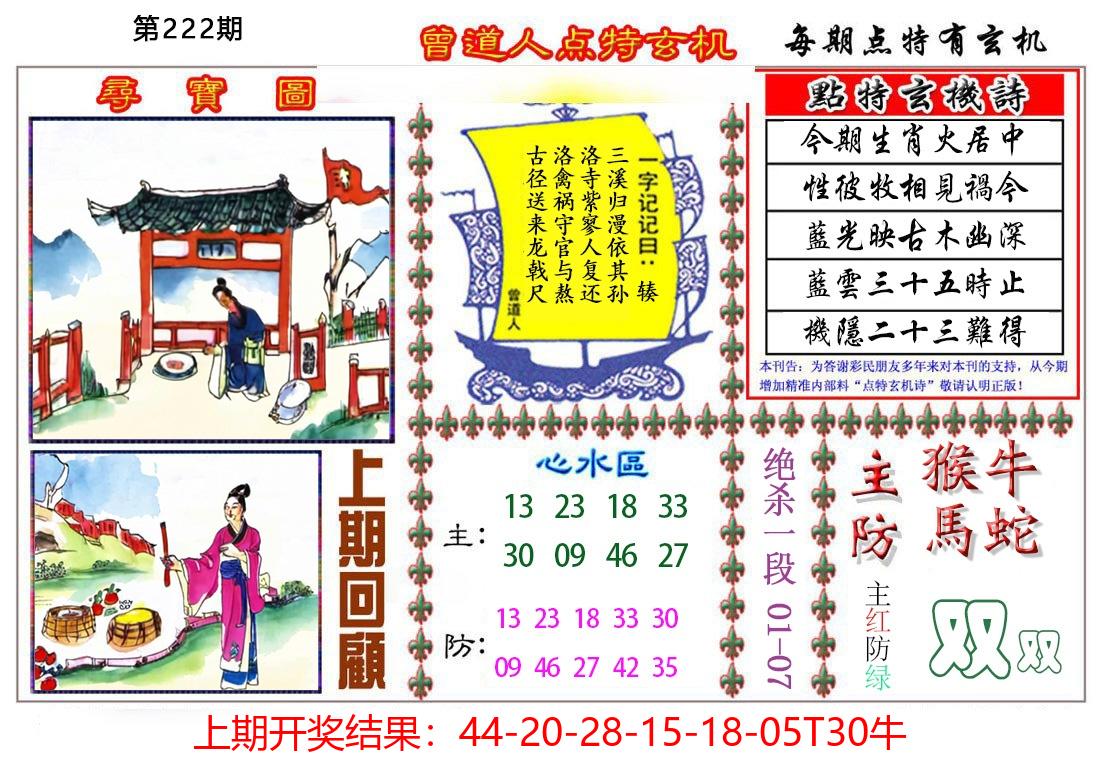 第222期
曾道人点特玄机
每期点特有玄机
尋寶圖
一字记记曰：辏
三溪归漫依其孙
洛寺紫寥人复还
洛禽祸守官与熬
古径送来龙戟尺
曾道人
點特玄機詩
今期生肖火居中
性彼牧相見禍今
藍光映古木幽深
藍雲三十五時止
機隱二十三難得
本刊告：为答谢彩民朋友多年来对本刊的支持，从今期
增加精准内部料“点特玄机诗”敬请认明正版！
上期回顧
心水區
主：
13 23 18 33
30 09 46 27
防：
13 23 18 33 30
09 46 27 42 35
绝杀一段 01-07
主 猴牛
防 馬蛇
主红防绿
双双
上期开奖结果：44-20-28-15-18-05T30牛